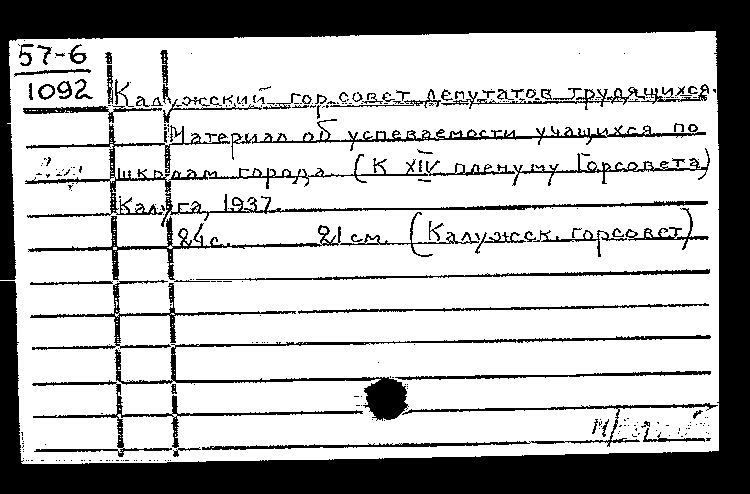 57-6
1092
Калужский гор. совет депутатов трудящихся.
Материал об успеваемости учащихся по
школам города (К XIV пленуму Горсовета)
Калуга, 1937.
24 с. 21 см. (Калужск. горсовет)